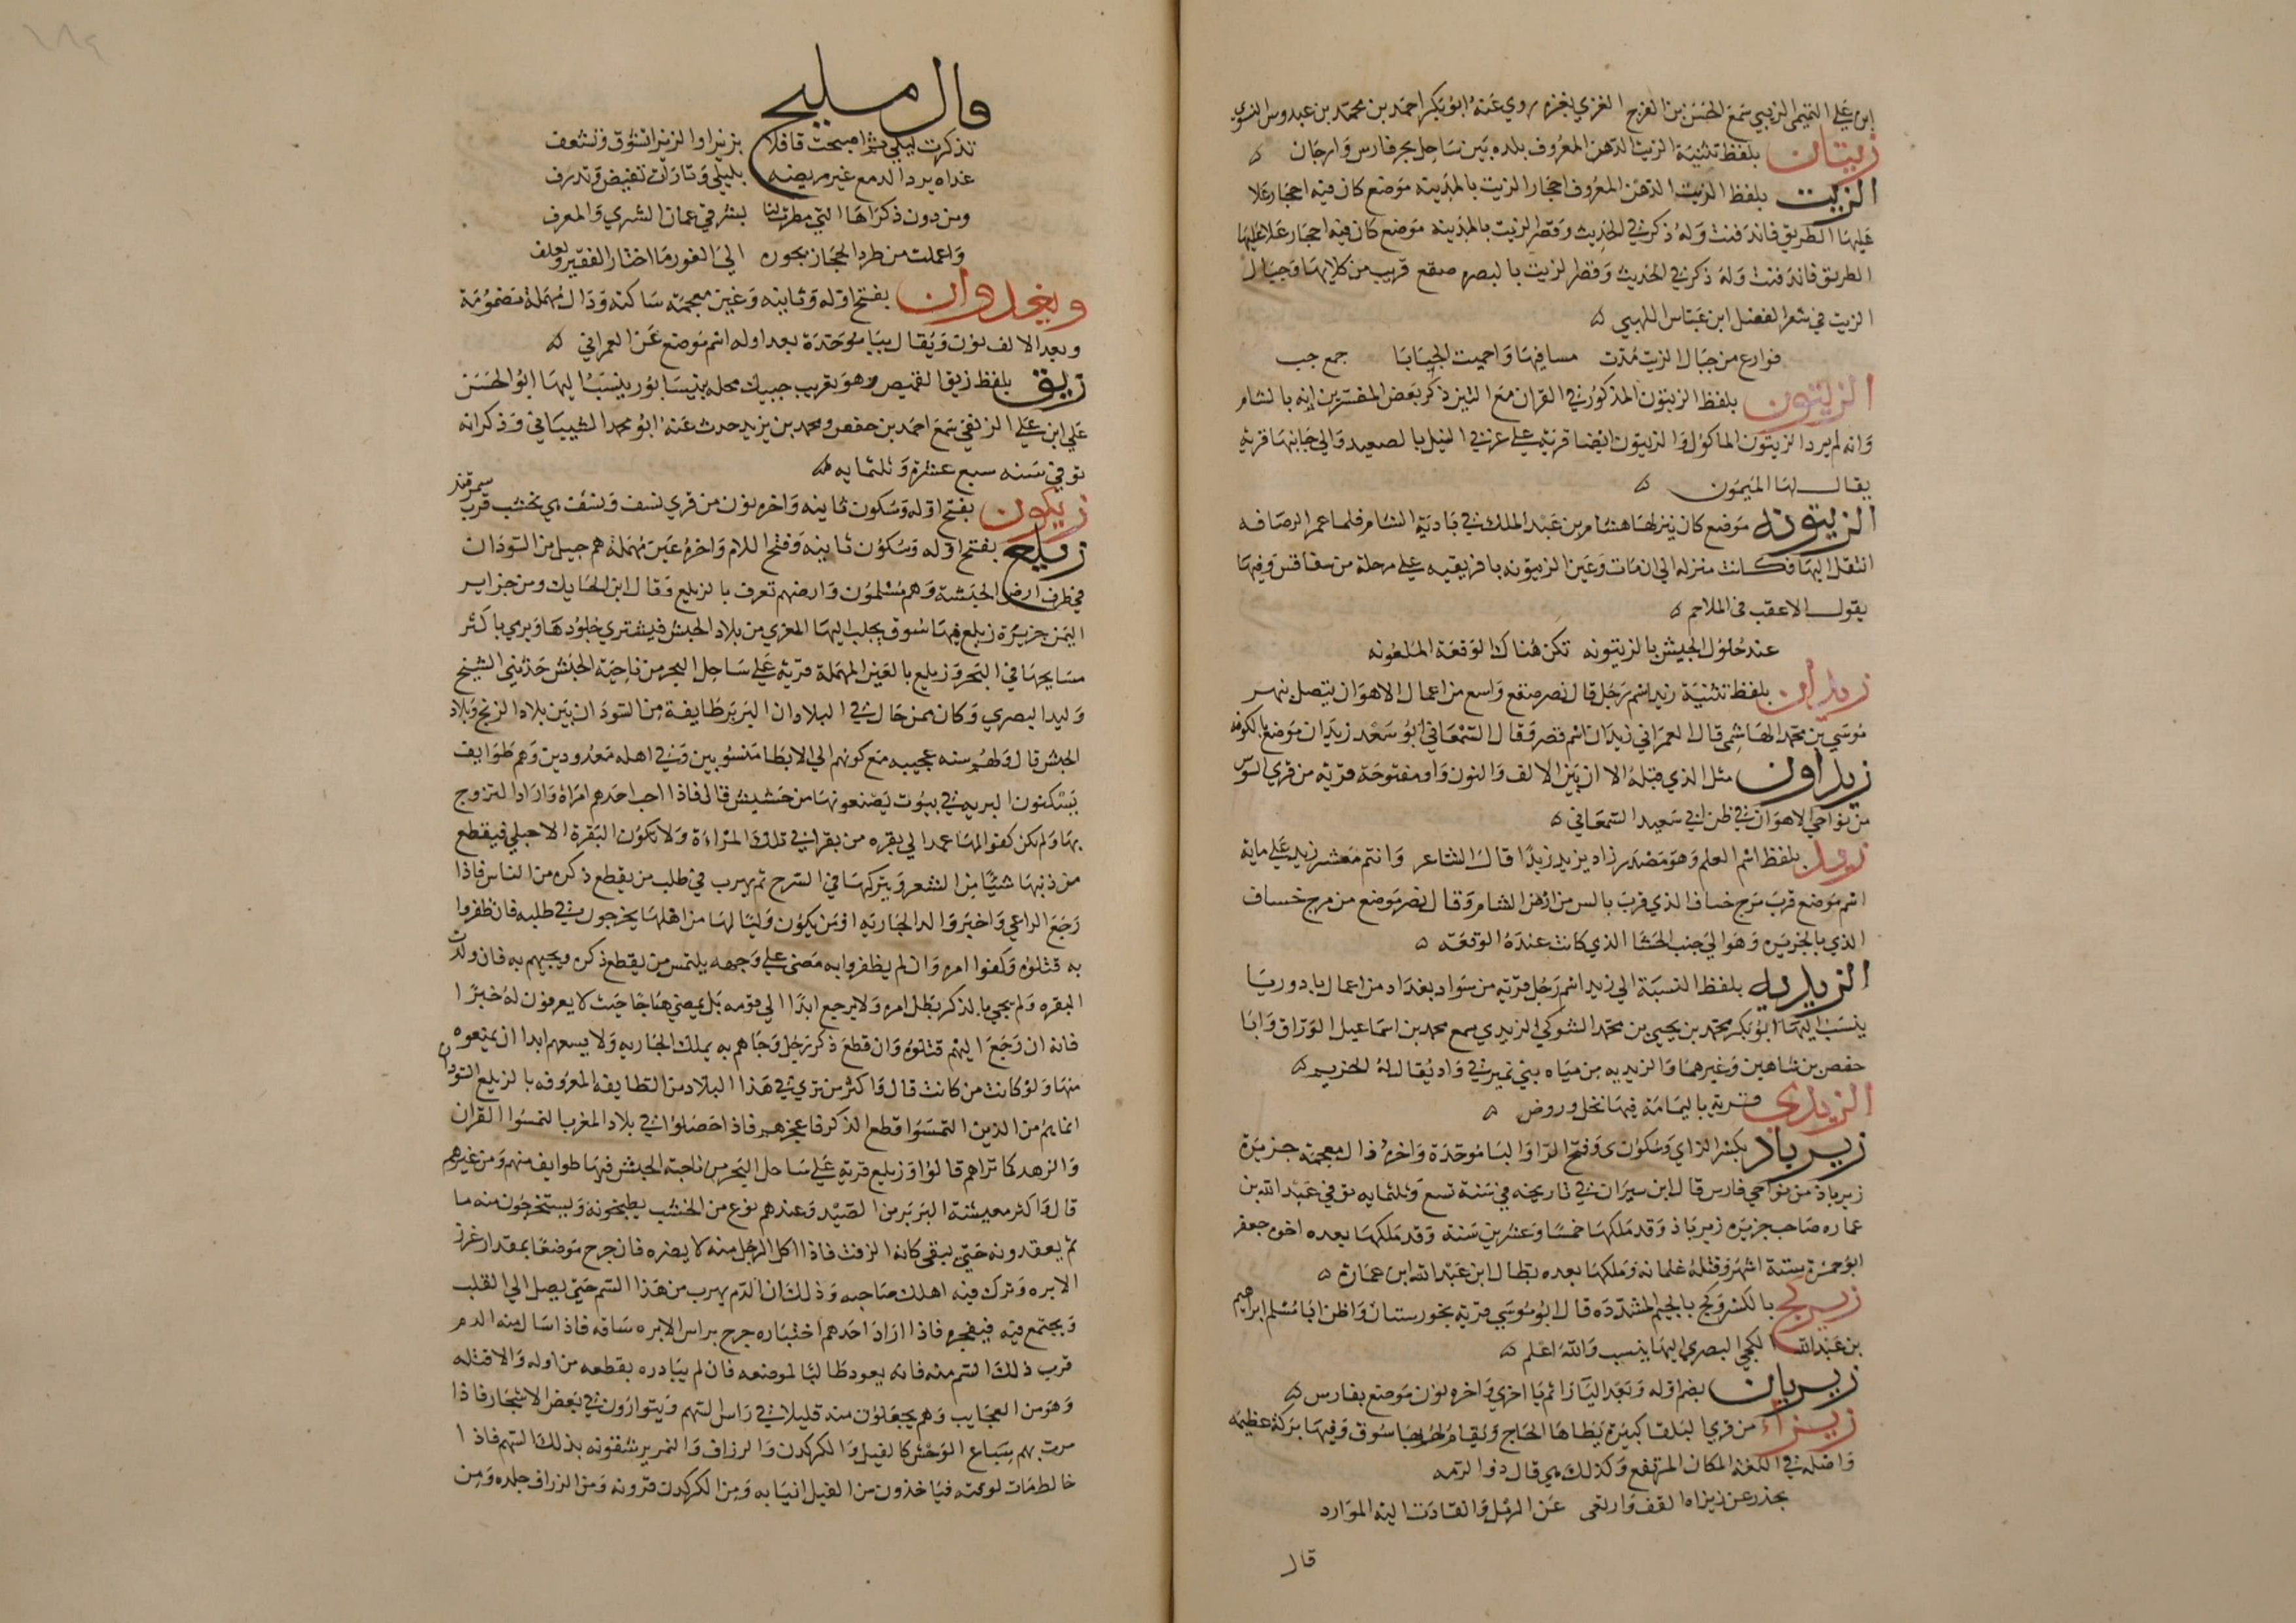 ابن علي التميمي الزيبي سمع الحسن بن الفرج الغزي بغزه روي عنه ابو بكر احمد بن محمد بن عبدوس النسوي
زيتان بلفظ تثنية الزيت الدهن المعروف بلده بين ساحل بحر فارس وارجان
الزيت بلفظ الزيت الدهن المعروف احجار الزيت بالمدينه موضع كان فيه احجار علا
عليها الطريق فاندفنت وله ذكر في الحديث وقصر الزيت بالمدينه موضع كان فيه احجار علا عليها
الطريق فاندفنت وله ذكر في الحديث وقصر الزيت بالبصره صقع قريب من كلايها وجبال
الزيت في شعر الفضل ابن عباس اللهبي
فوارع من جبال الزيت مدت مسافيها واحميت الجبابا جمع جب
الزيتون بلفظ الزيتون المذكور في القران مع التين ذكر بعض المفسرين انه بالشام
وانه لم يرد الزيتون الماكول والزيتون ايضا قرية على غربي النيل بالصعيد والي جانبها قرية
يقال لها الميمون
الزيتونه موضع كان ينزلها هشام بن عبد الملك في بادية الشام فلما عمر الرصافه
انتقل اليها فكانت منزله الي ان مات وعين الزيتونه بافريقيه علي مرحلة من سفاقس وفيها
يقول الاعقب في الملاحم
عند حلول الجيش بالزيتونه تكن هناك الوقعة الملعونه
زيدان بلفظ تثنية زيد اسم رجل قال نصر صقع واسع من اعمال الاهواز يتصل بنهر
موسي بن محمد الهاشمي قال العمراني زيدان اسم قصر وقال السمعاني ابو سعد زيدان موضع بالكوفه
زيداون مثل الذي قبله الا ان بين الالف والنون واو مفتوحة قرية من قري السوس
من نواحي الاهواز في ظن ابي سعيد السمعاني
زيد بلفظ اسم العلم وهو مصدر زاد يزيد زيدا قال الشاعر وانتم معشر زيد علي ماية
اسم موضع قرب مرج خساف الذي قرب بالس من ارض الشام وقال نصر موضع من مرج خساف
الذي بالجزيره وهو الي جنب الحشا الذي كانت عنده الوقعه
الزيديه بلفظ النسبة الي زيد اسم رجل قرية من سواد بغداد من اعمال بادوريا
ينسب اليها ابو بكر محمد بن يحيي بن محمد الشوكي الزيدي سمع محمد بن اسماعيل الوراق وابا
حفص بن شاهين وغيرهما والزيديه من مياه بني نمير في واد يقال له الحزيم
الزيدي قرية باليمامة فيها نخل وروض
زيرباذ بكسر الزاي وسكون ى وفتح الرا والبا موحدة واخره ذال معجمه جزيرة
زيرباذ من نواحي فارس قال ابن سيران في تاريخه في سنة تسع وثلثمايه توفي عبد الله بن
عماره صاحب جزيره زيرباذ وقد ملكها خمسا وعشرين سنة وقد ملكها بعده اخوه جعفر
ابو حمزة ستة اشهر وقتله غلمانه وملكها بعده بطال ابن عبد الله ابن عمارة
زيركج بالكسر وكج بالجيم المشددة قال ابو موسي قرية بخورستان واظن ابا مسلم ابراهيم
بن عبد الله الكجي البصري اليها ينسب والله اعلم
زيريان بضم اوله وبعد اليا زا ثم يا اخري واخره نون موضع بفارس
زيزاء من قري البلقا كبيرة يطاها الحاج ويقام لهم بها سوق وفيها بركة عظيمه
واصله في اللغة المكان المرتفع وكذلك هي قال ذو الرمه
بحذر عن زيزاه القف وارتقى عن الرمل وانقادت اليه الموارد
قال
قال مليح
تذكرت ليلي يوم اصبحت قافلا بزيزا والزيزا تشوق وتشعف
غداه يرد الدمع عين مريضه بليلي وتارات تفيض وتدرف
ومن دون ذكراها التي مطرت لنا بشرقي عمان الشري والمعرف
واعملت من طرد الحجاز بحوره الي الغور ما اختار الفقير ولفلف
وبغدوان بفتح اوله وثانيه وغين معجمه ساكنه ودال مهملة مضمومة
وبعد الالف نون ويقال ببا موحدة بعد اوله اسم موضع عن العمراني
زيق بلفظ زيق القميص وهو تقريب جيبك محله بنيسابور ينسب اليها ابو الحسن
علي ابن علي الزيقي سمع احمد بن حفص ومحمد بن يزيد حدث عنه ابو محمد الشيباني وذكر انه
توفي سنه سبع عشرة وثلثمايه
زيكون بفتح اوله وسكون ثانيه واخره نون من قري نسف ونسف هي نخشب قرب سمرقند
زيلع بفتح اوله وسكون ثانيه وفتح اللام واخره عين مهملة هم جيل من السودان
في طرف ارض الحبشة وهم مسلمون وارضهم تعرف بالزيلع وقال ابن الحايك ومن جزاير
اليمن جزيرة زيلع فيها سوق يجلب اليها المعزي من بلاد الحبش فيشتري جلودها ويرمي باكثر
مسايحها في البحر وزيلع بالعين المهملة قرية علي ساحل البحر من ناحية الحبش حدثني الشيخ
وليد البصري وكان ممن جال في البلاد ان البربر طايفة من السودان بين بلاد الزنج وبلاد
الحبش قال ولهم سنه عجيبه مع كونهم الي الابطا منسوبين وفي اهله معدودين وهم طوايف
يسكنون البريه في بيوت يصنعونها من حشيش قال فاذا احب احدهم امراة واراد التزوج
بها ولم يكن كفوا لها عمد الي بقره من بقر ابي تلك المراة ولا تكون البقرة الا حبلي فيقطع
من ذنبها شيئا من الشعر ويتركها في السرح ثم يهرب في طلب من يقطع ذكره من الناس فاذا
رجع الراعي واخبر والد الجاريه او من يكون وليا لها من اهلها يخرجون في طلبه فان ظفروا
به قتلوه وكفوا امره وان لم يظفروا به مضى علي وجهه يلتمس من يقطع ذكره ويجيهم به فان ولدت
البقره ولم يجي بالذكر بطل امره ولا يرجع ابدا الي قومه بل يمضي هاجا حيث لا يعرفون له خبرا
فانه ان رجع اليهم قتلوه وان قطع ذكر رجل وجاهم به يملك الجاريه ولا يسعهم ابدا ان يمنعوه
منها ولو كانت من كانت قال واكثر من تري في هذا البلاد من الطايفه المعروفه بالزيلع السودان
انما هم من الذين التمسوا قطع الذكر فاعجزهم فاذا حصلوا في بلاد المغرب التمسوا القران
والزهد كما تراهم قالوا وزيلع قرية علي ساحل البحر من ناحية الحبش فيها طوايف منهم ومن غيرهم
قال واكثر معيشة البربر من الصيد وعندهم نوع من الخشب يطبخونه ويستخرجون منه ما
ثم يعقدونه حتى يبقى كانه الزفت فاذا اكل الرجل منه لا يضره فان جرح موضعا بمقدار غرز
الابره وترك فيه اهلك صاحبه وذلك ان الدم يهرب من هذا السم حتى يصل الي القلب
ويجتمع فيه فيفجره فاذا اراد احدهم اختباره جرح براس الابره ساقه فاذا سال منه الدم
قرب ذلك السم منه فانه يعود طالبا لموضعه فان لم يبادره بقطعه من اوله والا قتله
وهو من العجايب وهم يجعلون منه قليلا في راس السهم ويتوارون في بعض الاشجار فاذا
مرت بهم سباع الوحش كالفيل والكركدن والزراف والنمر يرشقونه بذلك السهم فاذا
خالط مات لوقته فياخذون من الفيل انيابه ومن الكركدن قرونه ومن الزراف جلده ومن